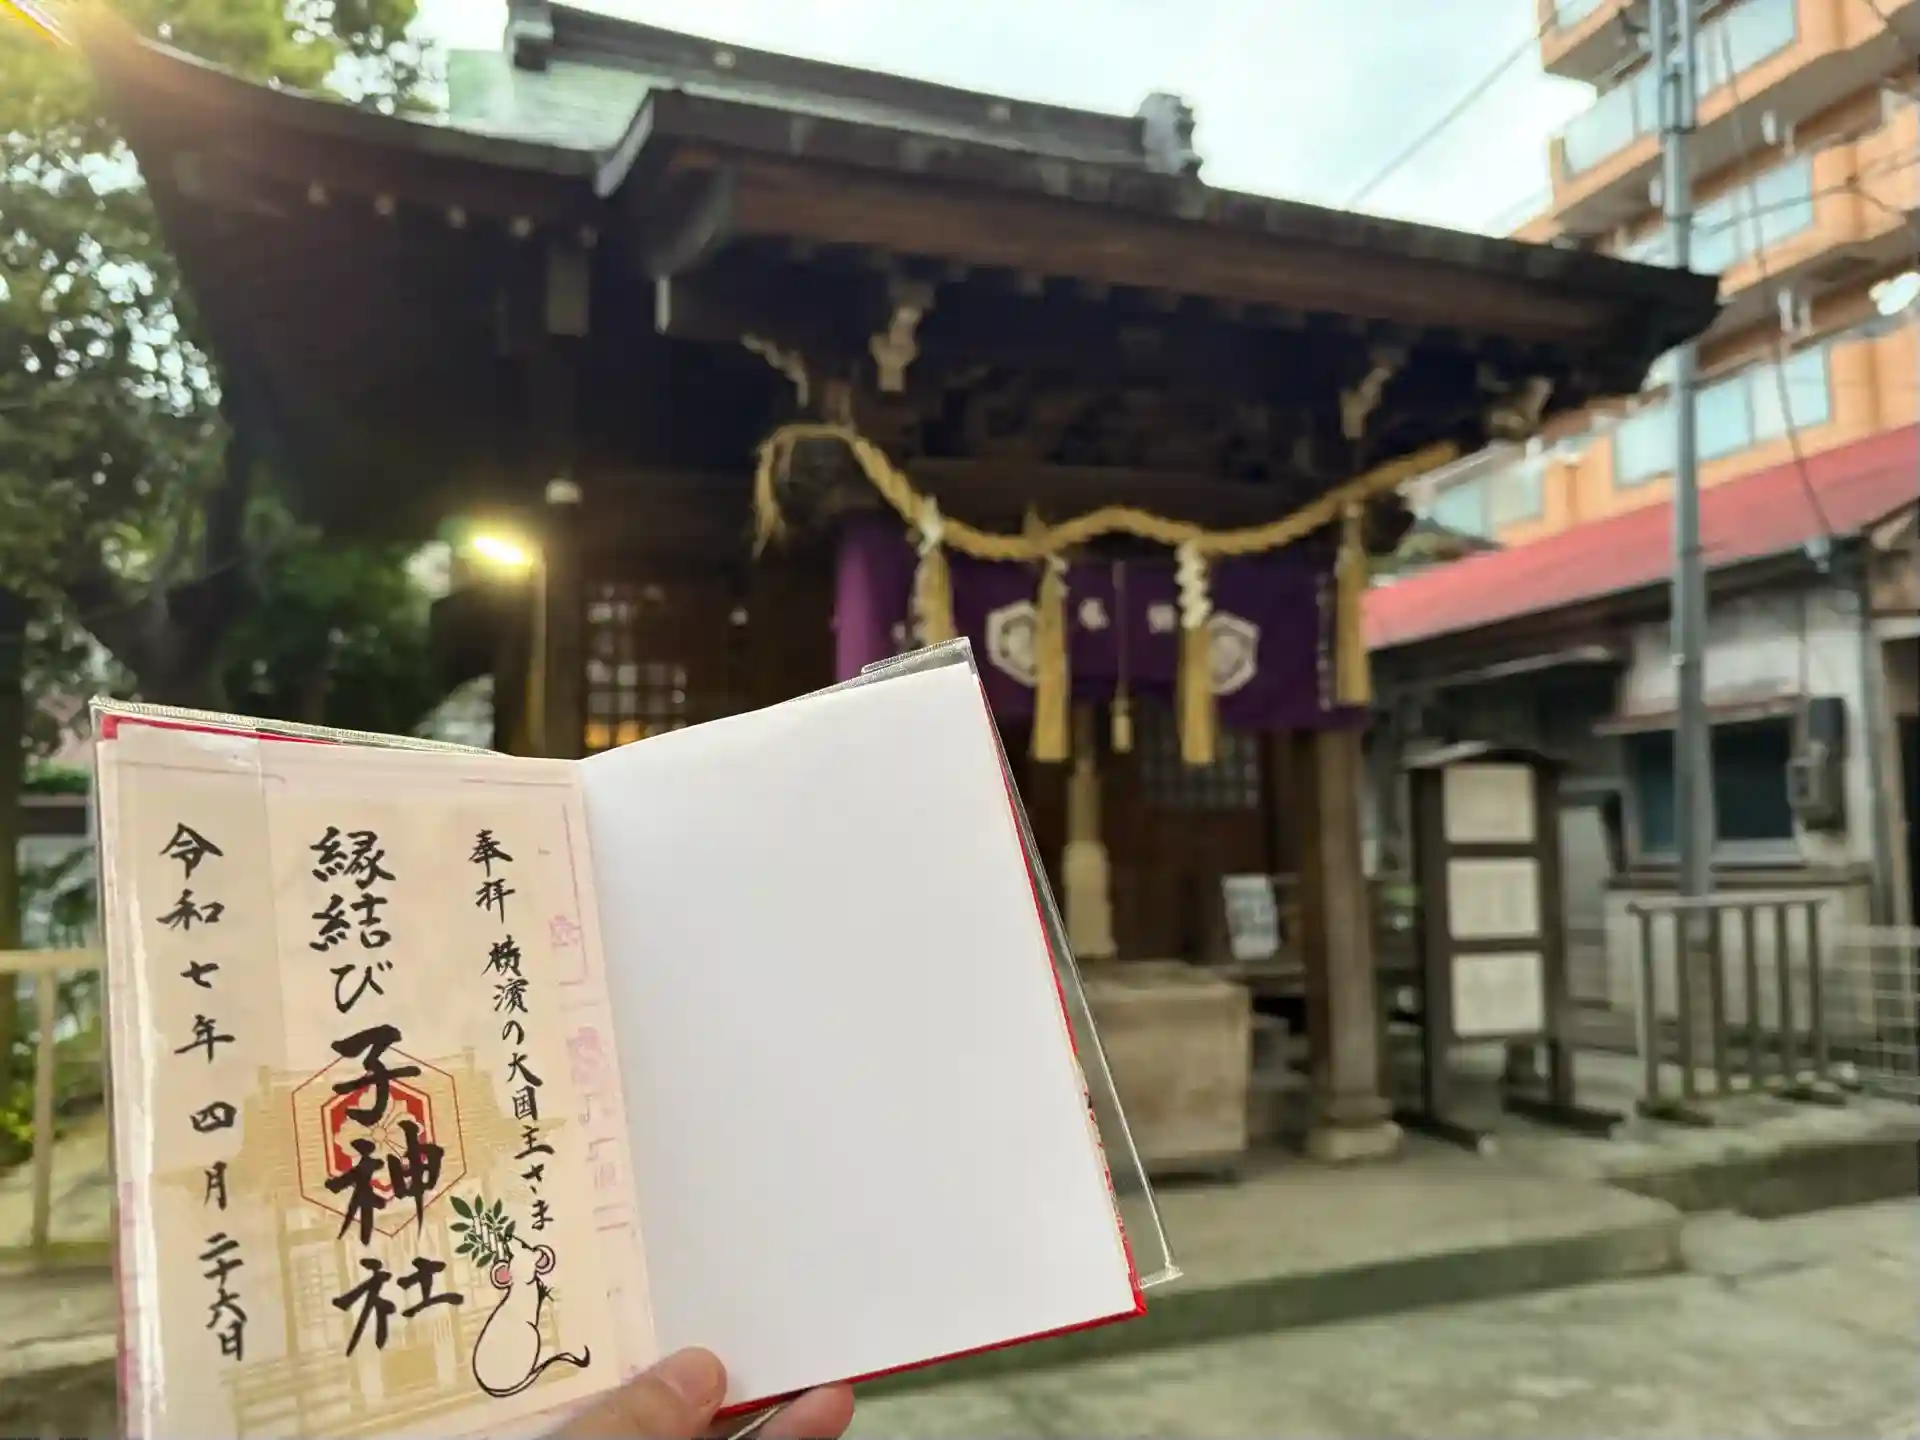 奉拝 横濱の大国主さま
縁結び 子神社
令和七年 四月 二十六日